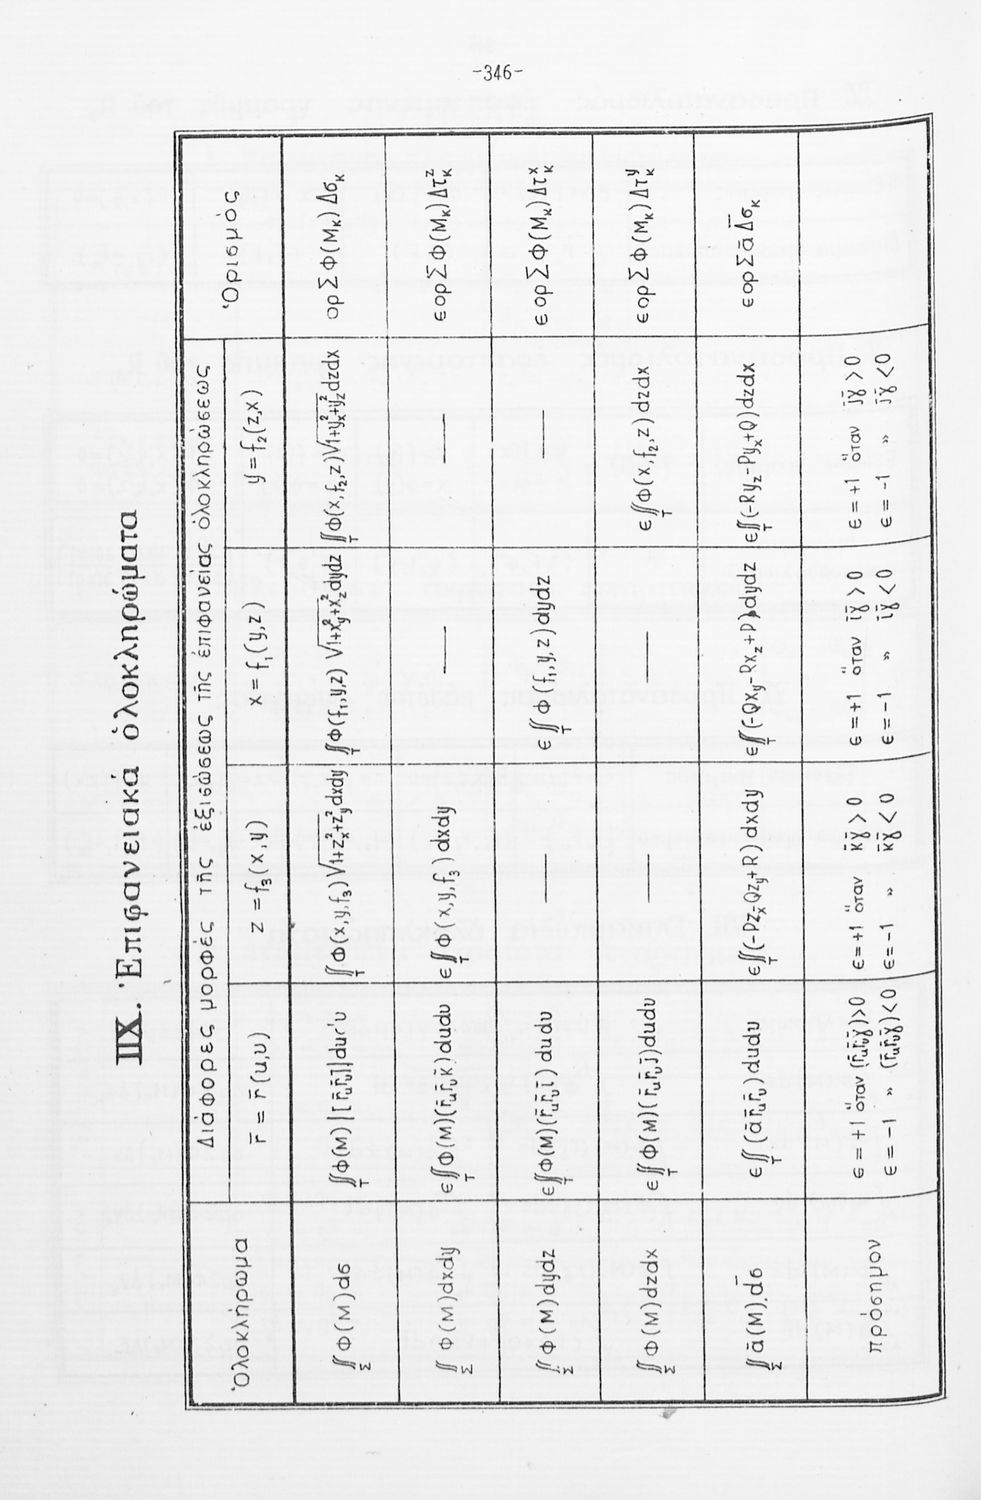 -346-
ΙΙΧ. Ἐπιφανειακά ὁλοκληρώματα
Ὁλοκλήρωμα | Διάφορες μορφές τῆς ἐξισώσεως τῆς ἐπιφανείας ὁλοκληρώσεως | Ὁρισμός
r̄ = r̄(u,υ) | z = f₃(x,y) | x = f₁(y,z) | y = f₂(z,x)
∬_Σ Φ(M)dσ | ∬_T Φ(M)|[r̄_u r̄_υ]|dudυ | ∬_T Φ(x,y,f₃)√1+z_x²+z_y² dxdy | ∬_T Φ(f₁,y,z)√1+x_y²+x_z² dydz | ∬_T Φ(x,f₂,z)√1+y_x²+y_z² dzdx | ορΣΦ(M_κ)Δσ_κ
∬_Σ Φ(M)dxdy | ϵ∬_T Φ(M)(r̄_u r̄_υ k̄)dudυ | ϵ∬_T Φ(x,y,f₃)dxdy | — | — | ϵορΣΦ(M_κ)Δτ_κ^z
∬_Σ Φ(M)dydz | ϵ∬_T Φ(M)(r̄_u r̄_υ ī)dudυ | — | ϵ∬_T Φ(f₁,y,z)dydz | — | ϵορΣΦ(M_κ)Δτ_κ^x
∬_Σ Φ(M)dzdx | ϵ∬_T Φ(M)(r̄_u r̄_υ j̄)dudυ | — | — | ϵ∬_T Φ(x,f₂,z)dzdx | ϵορΣΦ(M_κ)Δτ_κ^y
∬_Σ ā(M).dσ̄ | ϵ∬_T (ā r̄_u r̄_υ)dudυ | ϵ∬_T (-Pz_x-Qz_y+R)dxdy | ϵ∬_T (-Qx_y-Rx_z+P)dydz | ϵ∬_T (-Ry_z-Py_x+Q)dzdx | ϵορΣā Δσ̄_κ
πρόσημον | ϵ=+1 ὅταν (r̄_u r̄_υ γ̄)>0 | ϵ=+1 ὅταν k̄γ̄>0 | ϵ=+1 ὅταν īγ̄>0 | ϵ=+1 ὅταν j̄γ̄>0
ϵ=-1 » (r̄_u r̄_υ γ̄)<0 | ϵ=-1 » k̄γ̄<0 | ϵ=-1 » īγ̄<0 | ϵ=-1 » j̄γ̄<0